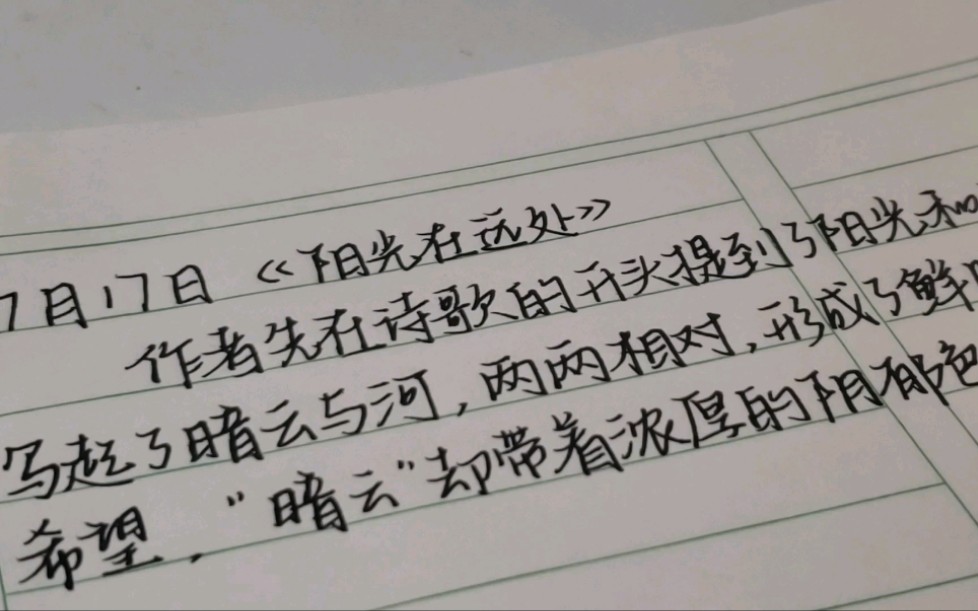 7月17日《阳光在远处》
作者先在诗歌的开头提到了阳光和
写起了暗云与河，两两相对，形成了鲜
希望，“暗云”却带着浓厚的阴郁色